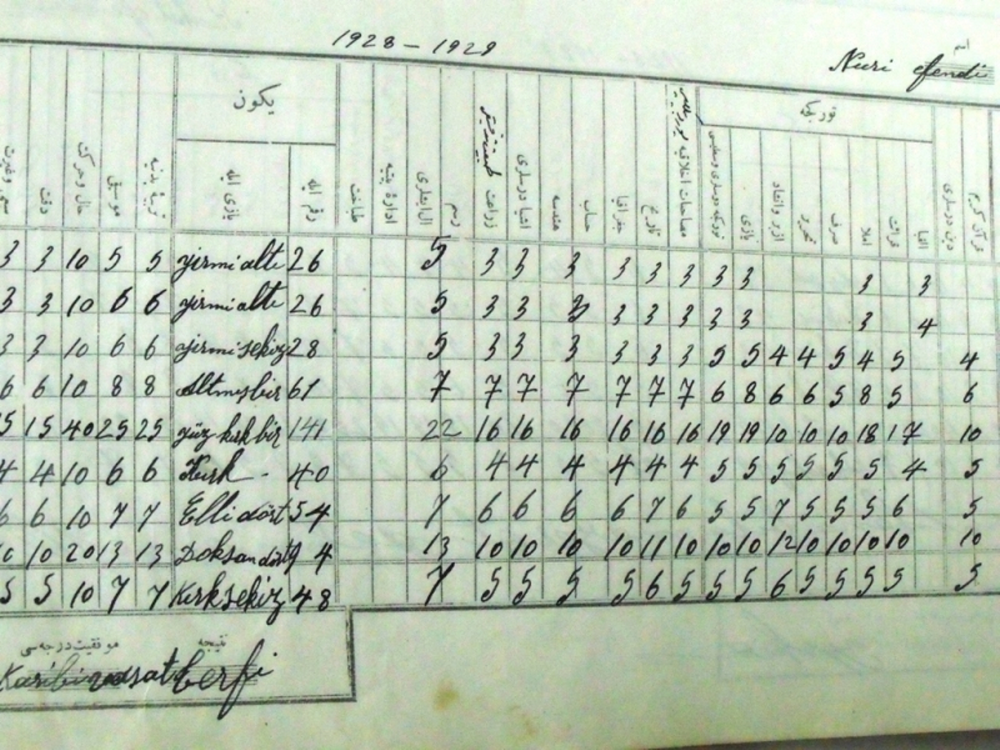 1928 - 1929
اسم
Nuri efendi
يكون
توركجه
سعی وغیرت
دقت
حال وحركت
موسيقى
تربيۀ بدنيه
يازى ايله
رقم ايله
طباخت
ادارۀ بيتيه
ال ايشلرى
رسم
زراعت
اشيا درسلرى
هندسه
حساب
جغرافيا
تاريخ
مصاحبات اخلاقيه
يازى
صرف
تحرير
املا
قرائت
الفبا
دين درسلرى
قرآن كريم
3 3 10 5 5 yirmi alte 26 5 3 3 3 3 3 3 3 3 3 3
3 3 10 6 6 yirmi alte 26 5 3 3 3 3 3 3 3 3 3 4
3 3 10 6 6 yirmi sekiz 28 5 3 3 3 3 3 3 5 5 4 4 5 4 5 4
6 6 10 8 8 Altmeş bir 61 7 7 7 7 7 7 7 6 8 6 6 5 8 5 6
15 40 25 25 yüz kırk bir 141 22 16 16 16 16 16 16 19 19 10 10 10 18 17 10
4 4 10 6 6 Kırk - 40 6 4 4 4 4 4 4 5 5 5 5 5 5 4 5
6 6 10 7 7 Elli dört 54 7 6 6 6 6 7 6 5 5 7 5 5 5 6 5
10 20 13 13 Doksan dört 94 13 10 10 10 10 11 10 10 10 12 10 10 10 10 10
5 5 10 7 7 Kırk sekiz 48 7 5 5 5 5 6 5 5 5 6 5 5 5 5 5
نتيجه
موفقيت درجه‌سى
berfi